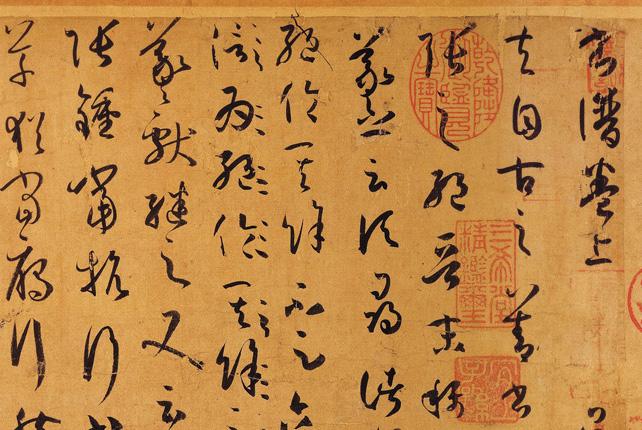 書譜卷上
夫自古之善書
張之絕晉末稱
羲之云頃尋諸
絕倫其餘不足
為絕倫其餘
羲獻繼之又云
張鍾當抗行
草猶當鴈行然
乾隆御覽之寶
三希堂精鑑璽
宜子孫